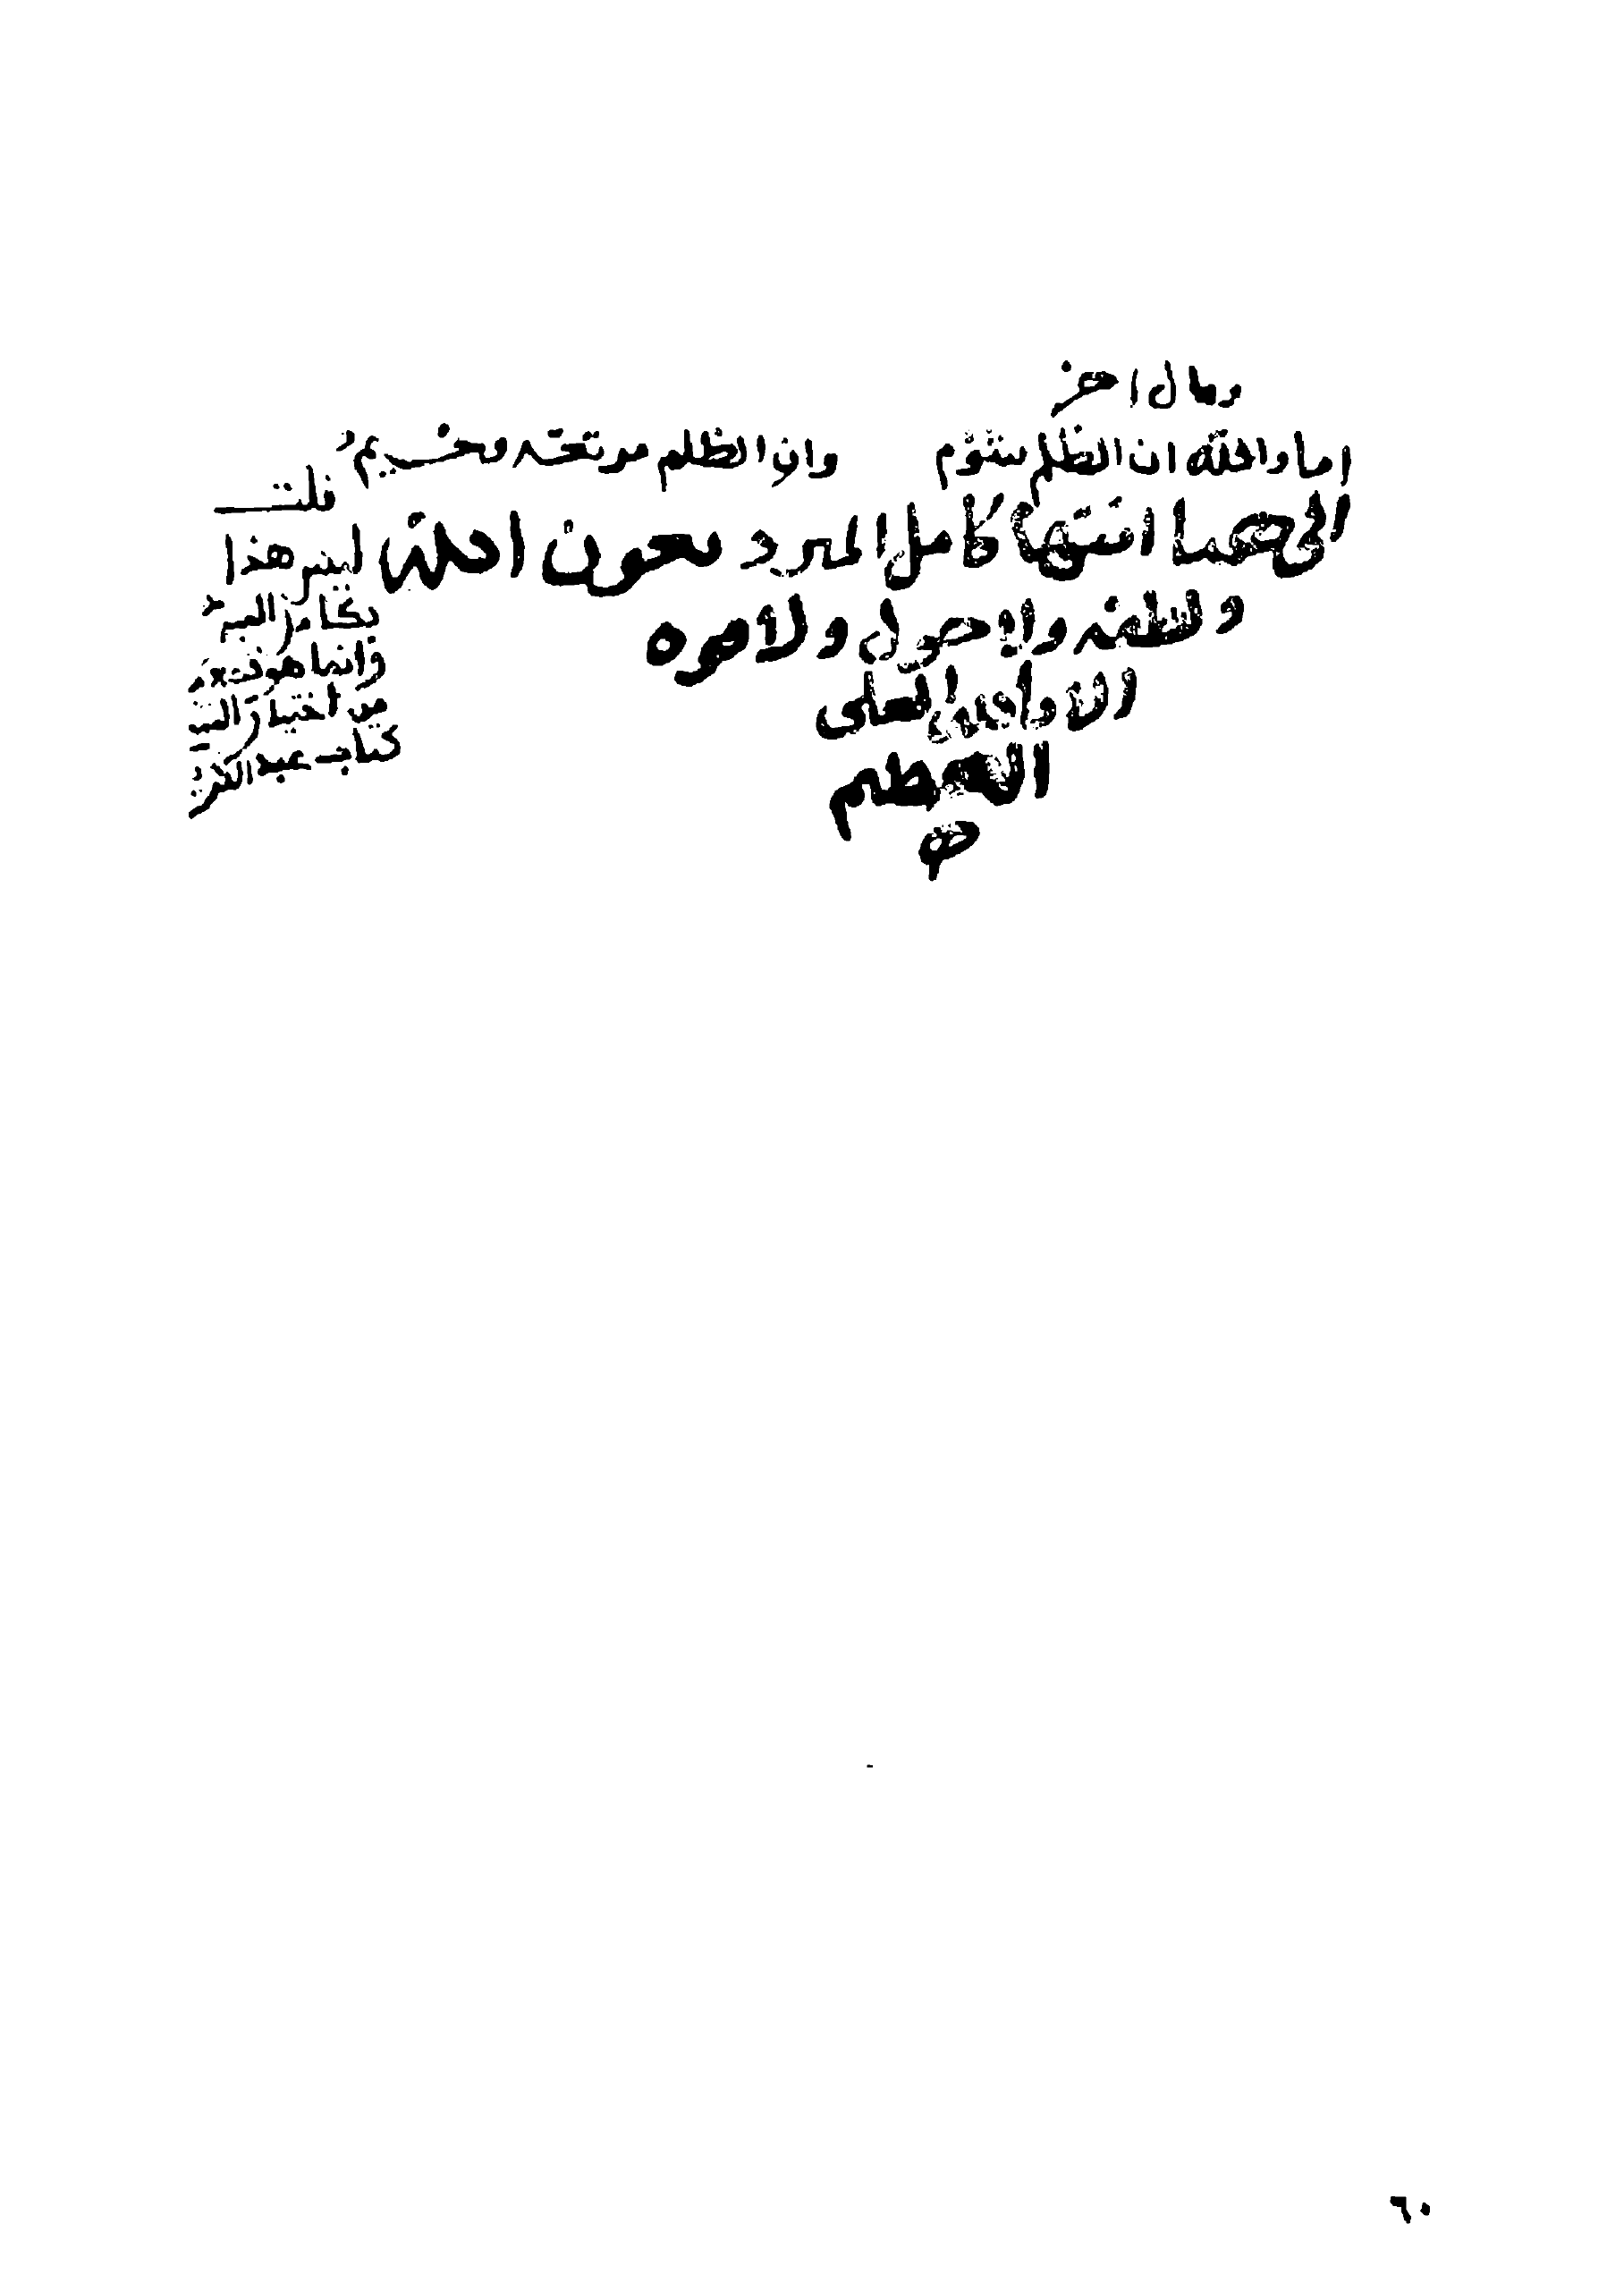 وقال اخر
اما والله ان الظلم شؤم وان الظلم مرتعه وخيم
الى ههنا انتها كامل المبرد بعون الله
ولطفه ولا حول ولا قوه
الا بالله العلى
العظيم
قلت
ليس هذا
بكامل المبرد
وانما هو
من اختيار
كتاب عبد
٦٠